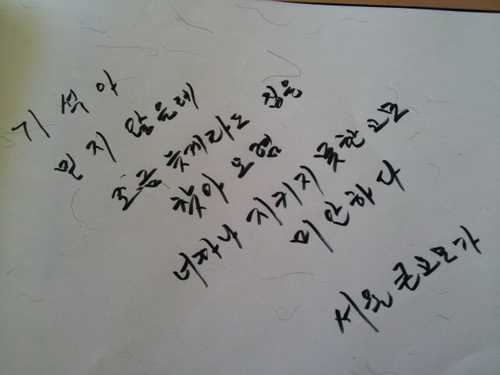 기석아
믿지 않을레
조금 늦게라도 집을
찾아 오렴
너하나 지키지 못한 고모
미안하다
서울 큰고모가